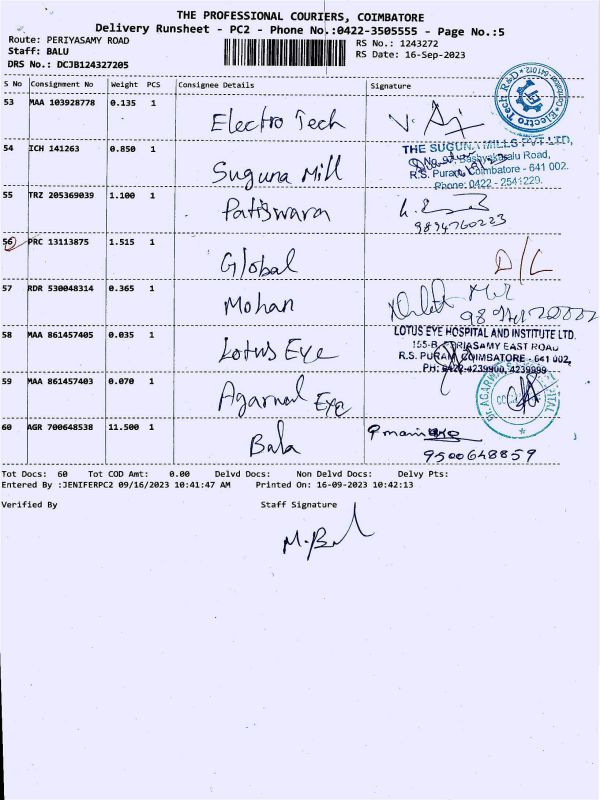 THE PROFESSIONAL COURIERS, COIMBATORE
Delivery Runsheet - PC2 - Phone No.:0422-3505555 - Page No.:5
Route: PERIYASAMY ROAD
RS No.: 1243272
Staff: BALU
RS Date: 16-Sep-2023
DRS No.: DCJB124327205
S No Consignment No Weight PCS Consignee Details Signature
53 MAA 103928778 0.135 1 Electro Tech
Electro Tech R&D
54 ICH 141263 0.850 1 Suguna Mill
THE SUGUNA MILLS PVT LTD,
Road,
R.S. Puram, Coimbatore - 641 002.
Phone: 0422 - 2541229.
55 TRZ 205369039 1.100 1 Patiswara
9894760223
56 PRC 13113875 1.515 1 Global D/L
57 RDR 530048314 0.365 1 Mohan
58 MAA 861457405 0.035 1 Lotus Eye
LOTUS EYE HOSPITAL AND INSTITUTE LTD.
EAST ROAD
R.S. PURAM, COIMBATORE - 641 002,
PH: 0422-4239900, 4239999
59 MAA 861457403 0.070 1 Agarwal Eye
60 AGR 700648538 11.500 1 Bala
9500648859
Tot Docs: 60 Tot COD Amt: 0.00 Delvd Docs: Non Delvd Docs: Delvy Pts:
Entered By :JENIFERPC2 09/16/2023 10:41:47 AM Printed On: 16-09-2023 10:42:13
Verified By Staff Signature